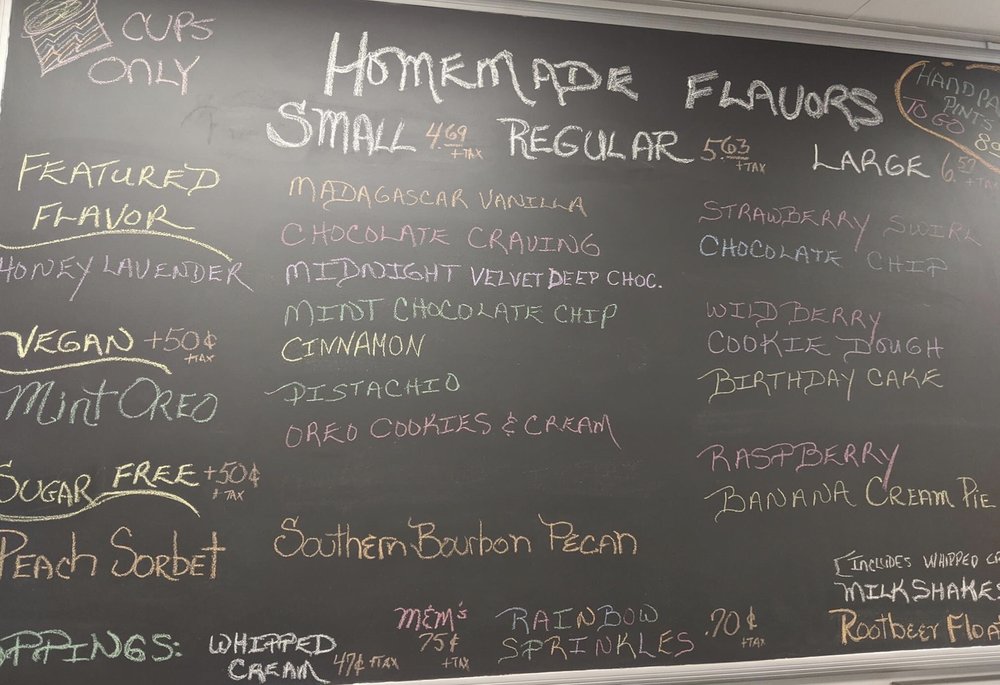 CUPS
ONLY
HOMEMADE FLAVORS
HAND
PINTS
TO GO
SMALL 4.69 +TAX REGULAR 5.63 +TAX LARGE 6.
FEATURED
FLAVOR
HONEY LAVENDER
VEGAN +50¢
+TAX
Mint OREO
SUGAR FREE +50¢
+TAX
PEACH SORBET
MADAGASCAR VANILLA
CHOCOLATE CRAVING
MIDNIGHT VELVET DEEP CHOC.
MINT CHOCOLATE CHIP
CINNAMON
PISTACHIO
OREO COOKIES & CREAM
SOUTHERN BOURBON PECAN
STRAWBERRY SWIRL
CHOCOLATE CHIP
WILD BERRY
COOKIE DOUGH
BIRTHDAY CAKE
RASPBERRY
BANANA CREAM PIE
(INCLUDES WHIPPED
MILKSHAKES
ROOTBEER FLOAT
OPPINGS: WHIPPED
CREAM 47¢ +TAX
M&M's
75¢
+TAX
RAINBOW
SPRINKLES .70¢
+TAX